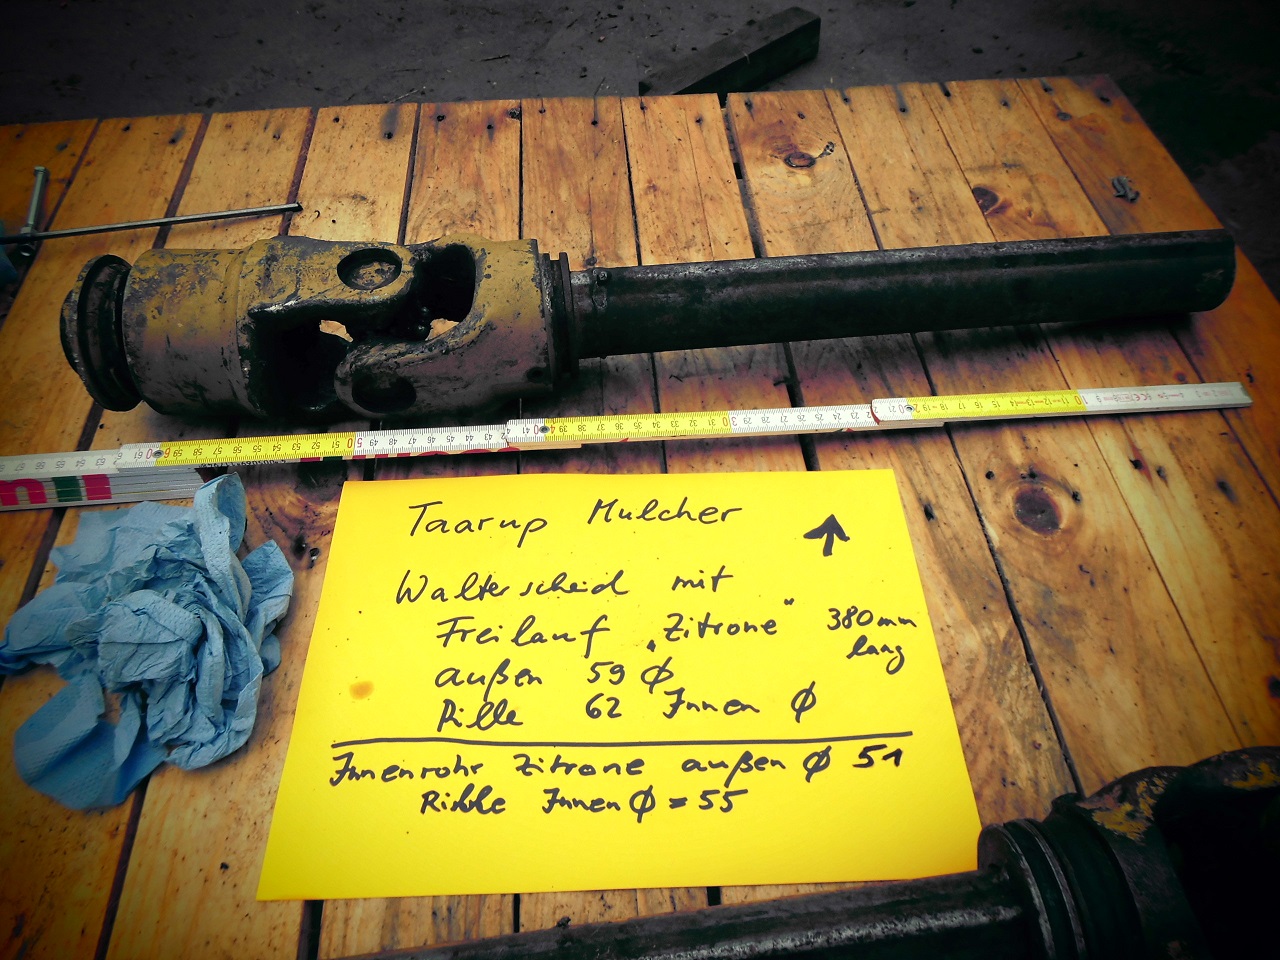 Taarup Mulcher
Walterscheid mit
Freilauf „Zitrone" 380mm
lang
außen 59 Ø
Rille 62 Innen Ø
Innenrohr Zitrone außen Ø 51
Rille Innen Ø = 55